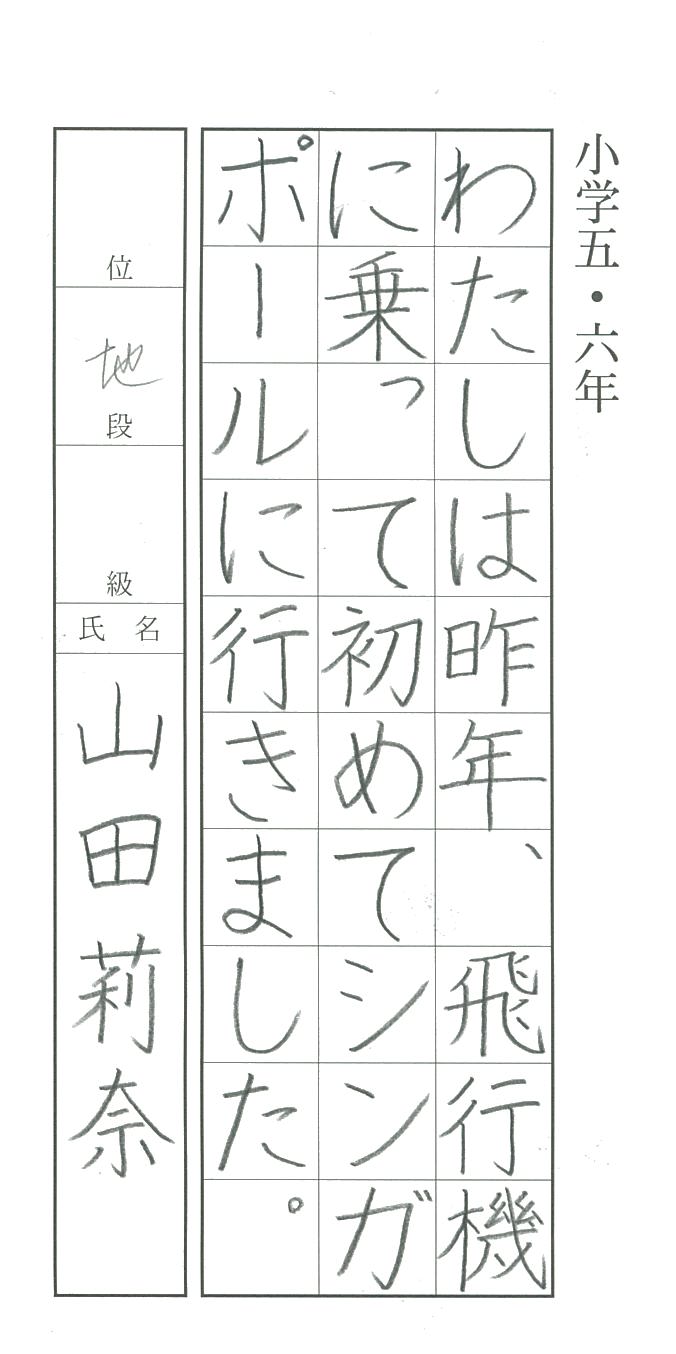 小学五・六年
わたしは昨年、飛行機
に乗って初めてシンガ
ポールに行きました。
位
地段
級
氏名
山田莉奈